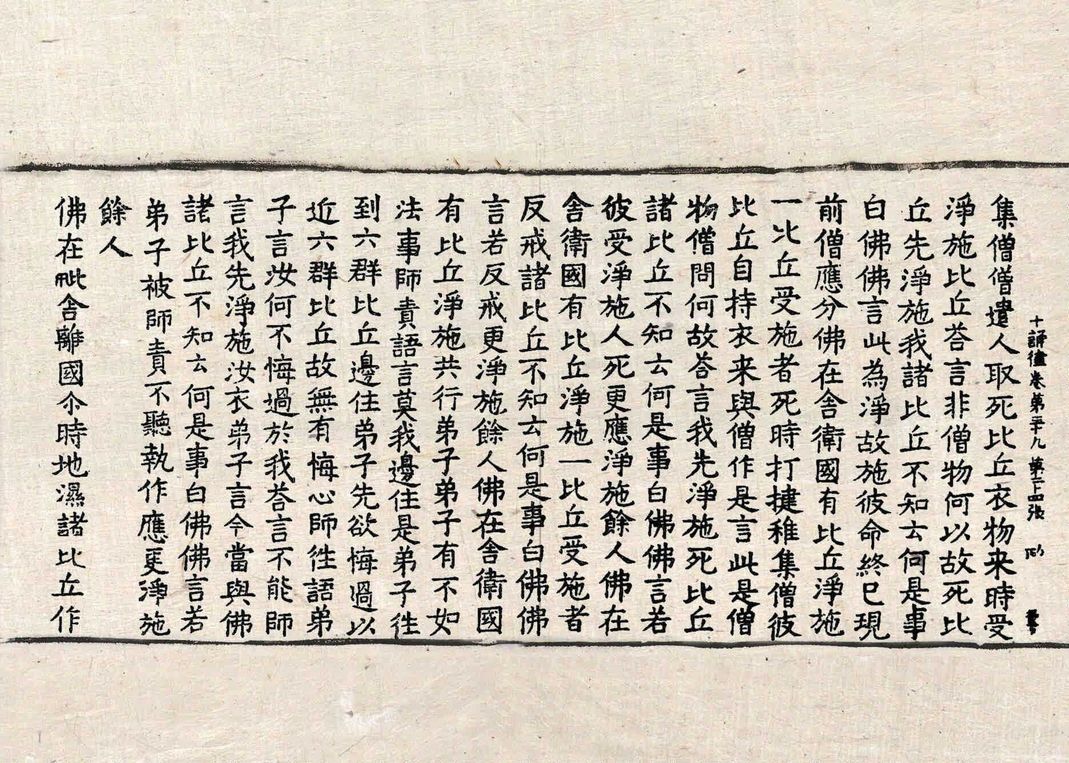 十誦律卷第九 第張
集僧僧遣人取死比丘衣物来時受
淨施比丘荅言非僧物何以故死比
丘先淨施我諸比丘不知云何是事
白佛佛言此為淨故施彼命終已現
前僧應分佛在舍衛國有比丘淨施
一比丘受施者死時打揵稚集僧彼
比丘自持衣来與僧作是言此是僧
物僧問何故荅言我先淨施死比丘
諸比丘不知云何是事白佛佛言若
彼受淨施人死更應淨施餘人佛在
舍衛國有比丘淨施一比丘受施者
反戒諸比丘不知云何是事白佛佛
言若反戒更淨施餘人佛在舍衛國
有比丘淨施共行弟子弟子有不如
法事師責語言莫我邊住是弟子徃
到六群比丘邊住弟子先欲悔過以
近六群比丘故無有悔心師徃語弟
子言汝何不悔過於我荅言不能師
言我先淨施汝衣弟子言今當與佛
諸比丘不知云何是事白佛佛言若
弟子被師責不聽執作應更淨施
餘人
佛在毗舍離國尒時地濕諸比丘作